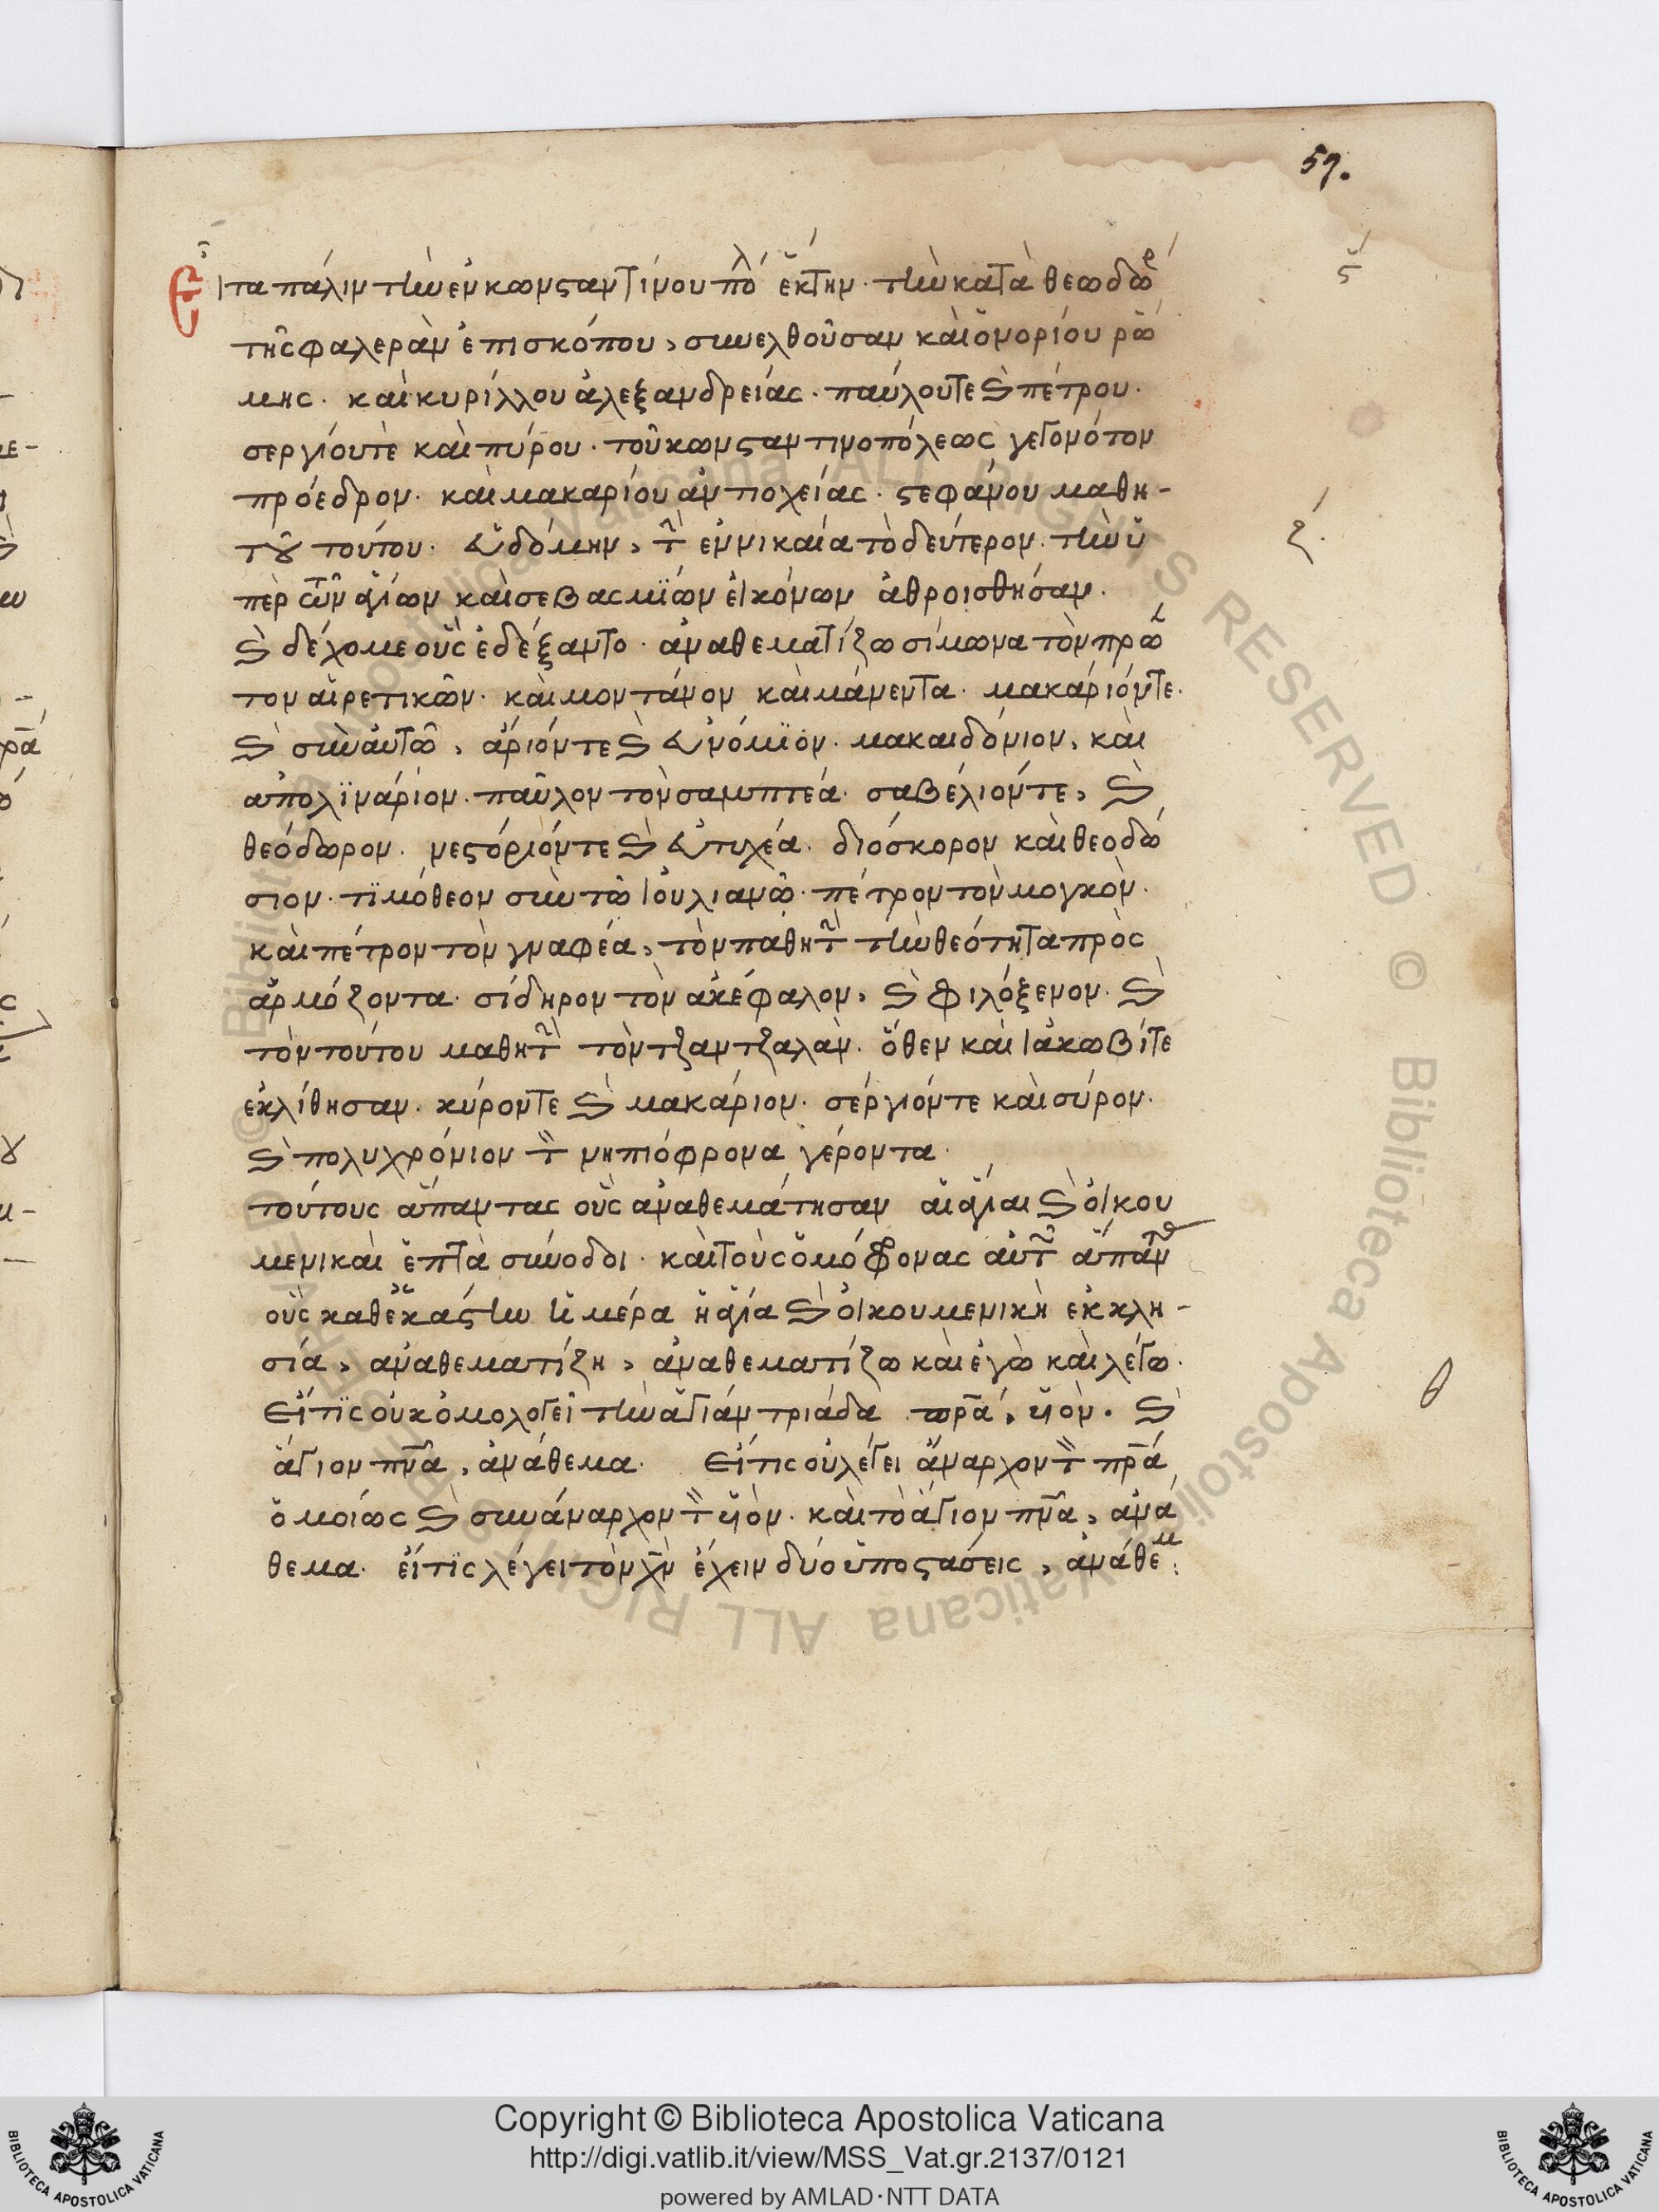 59.
Εἶτα πάλιν τὴν ἐν κωνσταντίνου πό ἕκτην· τὴν κατὰ θεωδώρ
τῆς φαλερὰν ἐπισκόπου, συνελθοῦσαν καὶ ὁνορίου ῥώ
μης· καὶ κυρίλλου ἀλεξανδρείας· παύλου τε καὶ πέτρου·
σεργίου τὲ καὶ πύρου· τοῦ κωνσταντινοπόλεως γεγονότον
πρόεδρον· καὶ μακαρίου ἀντιοχείας· στεφάνου μαθη-
τοῦ τούτου· εὐδόμην, τὴν ἐν νικαία τὸ δεύτερον· τὴν ὑ
πὲρ τῶν ἁγίων καὶ σεβασμϊών εἰκόνων ἀθροισθήσαν·
καὶ δέχομε οὓς ἐδέξαντο· ἀναθεματίζω σίμωνα τὸν πρῶ
τον αἱρετικῶν· καὶ μοντάνον καὶ μάνεντα· μακάριόντε·
καὶ σὺν αὐτῶ, ἄριόν τε καὶ εὐνόμϊον· μακαιδόνιον, καὶ
ἀπολϊνάριον· παῦλον τὸν σαμωπτεά· σαβέλιόν τε, καὶ
θεόδωρον· νεστόριόν τε καὶ εὐτυχέα· διόσκορον καὶ θεοδώ
σιον· τϊμόθεον σὺν τῶ ἰουλιανῶ· πέτρον τὸν μογκὸν·
καὶ πέτρον τὸν γναφέα, τὸν παθητὴν τὴν θεότητα πρὸς
ἁρμόζοντα· σίδηρον τὸν ἀκέφαλον, καὶ φιλόξενον· καὶ
τὸν τούτου μαθητὴν τὸν τζαντζαλὰν· ὅθεν καὶ ἰακωβίτε
ἐκλίθησαν· κύρον τε καὶ μακάριον· σέργιόν τε καὶ σύρον·
καὶ πολυχρόνιον τὸν νηπιόφρονα γέροντα·
τούτους ἅπαντας οὓς ἀναθεμάτησαν αἱ ἅγιαι καὶ οἰκου
μενικαὶ ἑπτὰ σύνοδοι· καὶ τοὺς ὁμόφρονας αὐτῶν ἅπαντας
οὓς καθεκάστην ἡμέρα ἡ ἁγία καὶ οἰκουμενικὴ ἐκκλη-
σία, ἀναθεματίζη, ἀναθεματίζω καὶ ἐγὼ καὶ λέγω·
Εἴ τϊς οὐκ ὁμολογεῖ τὴν ἁγίαν τριάδα πρα, υἱὸν· καὶ
ἅγιον πνα, ἀνάθεμα· Εἴ τις οὐ λέγει ἄναρχον τὸν πρα,
ὁμοίως καὶ συνάναρχον τὸν υἱὸν· καὶ τὸ ἅγιον πνα, ἀνά
θεμα· εἴ τϊς λέγει τὸν χν ἔχειν δύο ὑποστάσεις, ἀνάθεμ:
ϛ
ζ.
θ
Copyright © Biblioteca Apostolica Vaticana
http://digi.vatlib.it/view/MSS_Vat.gr.2137/0121
powered by AMLAD·NTT DATA
BIBLIOTECA APOSTOLICA VATICANA
BIBLIOTECA APOSTOLICA VATICANA
© Biblioteca Apostolica Vaticana ALL RIGHTS RESERVED © Biblioteca Apostolica Vaticana ALL RIGHTS RESERVED